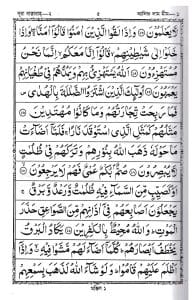 সূরা বাক্বারাহ্—২ ৫ আলিফ লাম মীম—১
لَّا يَعْلَمُوْنَ ۝ وَاِذَا لَقُوا الَّذِيْنَ اٰمَنُوْا قَالُوْٓا اٰمَنَّا ۚ وَاِذَا
خَلَوْا اِلٰى شَيٰطِيْنِهِمْ ۙ قَالُوْٓا اِنَّا مَعَكُمْ ۙ اِنَّمَا نَحْنُ
مُسْتَهْزِءُوْنَ ۝ اَللّٰهُ يَسْتَهْزِئُ بِهِمْ وَيَمُدُّهُمْ فِيْ طُغْيَانِهِمْ
يَعْمَهُوْنَ ۝ اُولٰٓئِكَ الَّذِيْنَ اشْتَرَوُا الضَّلٰلَةَ بِالْهُدٰى
فَمَا رَبِحَتْ تِّجَارَتُهُمْ وَمَا كَانُوْا مُهْتَدِيْنَ ۝
مَثَلُهُمْ كَمَثَلِ الَّذِي اسْتَوْقَدَ نَارًا ۚ فَلَمَّآ اَضَآءَتْ
مَا حَوْلَهٗ ذَهَبَ اللّٰهُ بِنُوْرِهِمْ وَتَرَكَهُمْ فِيْ ظُلُمٰتٍ
لَّا يُبْصِرُوْنَ ۝ صُمٌّۢ بُكْمٌ عُمْيٌ فَهُمْ لَا يَرْجِعُوْنَ ۝ اَوْ
كَصَيِّبٍ مِّنَ السَّمَآءِ فِيْهِ ظُلُمٰتٌ وَّرَعْدٌ وَّبَرْقٌ ۚ
يَجْعَلُوْنَ اَصَابِعَهُمْ فِيْٓ اٰذَانِهِمْ مِّنَ الصَّوَاعِقِ حَذَرَ
الْمَوْتِ ؕ وَاللّٰهُ مُحِيْطٌۢ بِالْكٰفِرِيْنَ ۝ يَكَادُ الْبَرْقُ
يَخْطَفُ اَبْصَارَهُمْ ؕ كُلَّمَآ اَضَآءَ لَهُمْ مَّشَوْا فِيْهِ ۙ وَاِذَآ
اَظْلَمَ عَلَيْهِمْ قَامُوْا ؕ وَلَوْ شَآءَ اللّٰهُ لَذَهَبَ بِسَمْعِهِمْ
মঞ্জিল ১